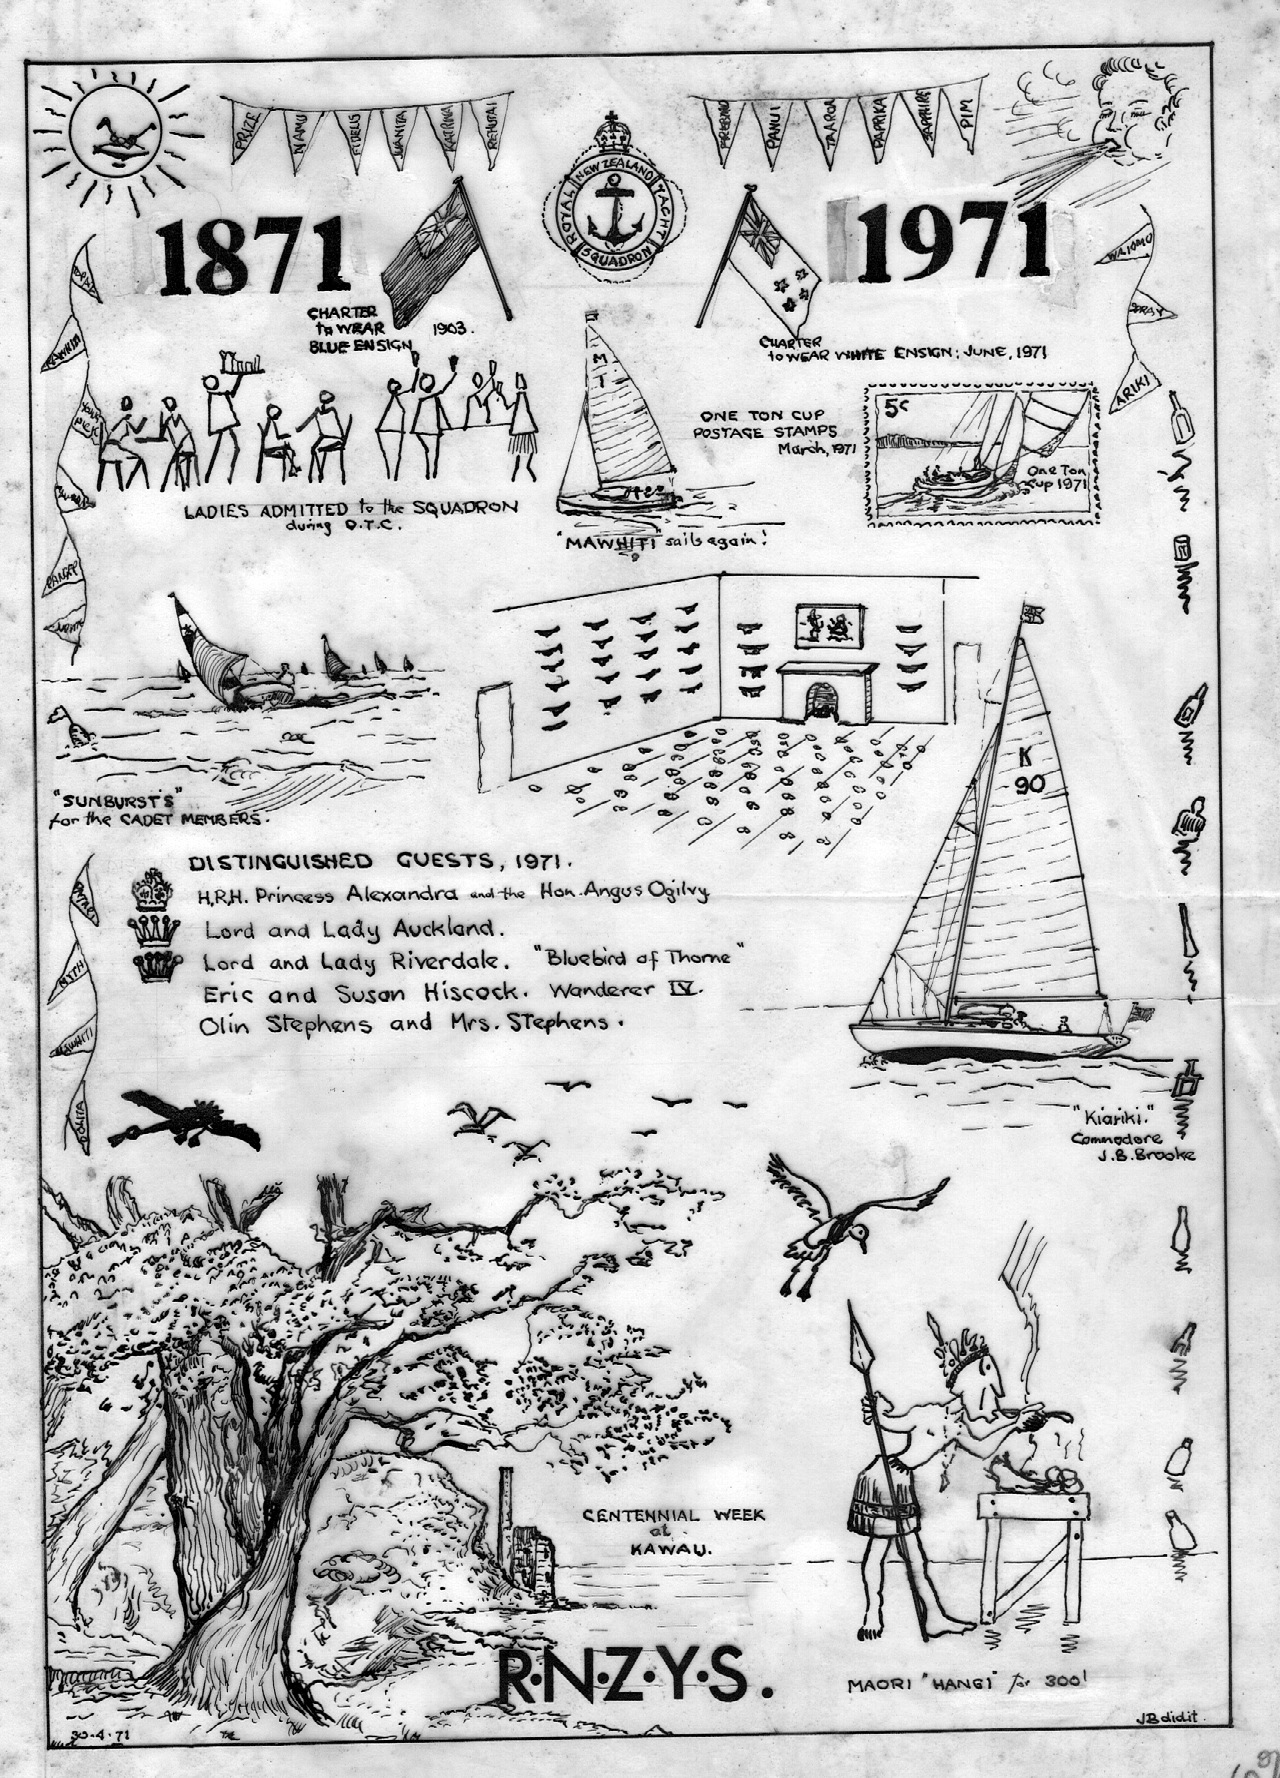 PRIZE
NAMU
IORANGI
JUANITA
KATRINA
REHUTAI
ROYAL NEW ZEALAND YACHT SQUADRON
PANUI
PAPRIKA
SAPPHIRE
PIM
1871
1971
WAIOMO
SPRAY
ARIKI
RAWHITI
CHARTER
to WEAR
BLUE ENSIGN
1903.
CHARTER
to WEAR WHITE ENSIGN: JUNE, 1971
M
1
ONE TON CUP
POSTAGE STAMPS
March, 1971
5c
One Ton
Cup 1971
LADIES ADMITTED to the SQUADRON
during O.T.C.
"MAWHITI" sails again!
"SUNBURST'S"
for the CADET MEMBERS.
K
90
DISTINGUISHED GUESTS, 1971.
H.R.H. Princess Alexandra and the Hon. Angus Ogilvy
Lord and Lady Auckland.
Lord and Lady Riverdale. "Bluebird of Thorne"
Eric and Susan Hiscock. Wanderer IV.
Olin Stephens and Mrs. Stephens.
MAWHITI
"Kiariki."
Commodore
J.B. Brooke
CENTENNIAL WEEK
at
KAWAU.
R·N·Z·Y·S.
MAORI "HANGI" for 300!
30·4·71
JB didit.